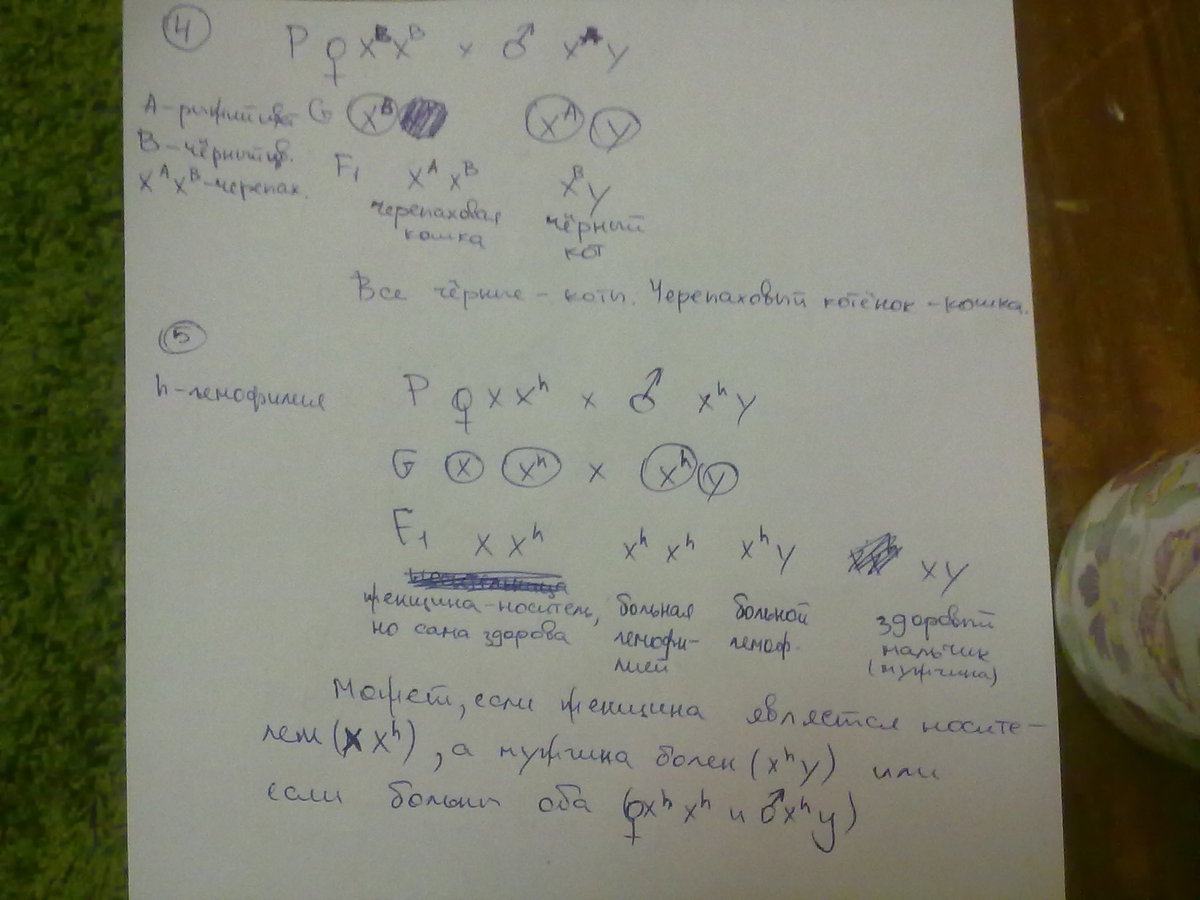 4
P ♀ X^B X^B × ♂ X^A Y
A - рыжий цвет G X^B X^A Y
B - чёрный цв. F1 X^A X^B X^B Y
X^A X^B - черепах. черепаховая кошка чёрный кот
Все чёрные - коты. Черепаховый котёнок - кошка.
5
h - гемофилия P ♀ X X^h × ♂ X^h Y
G X X^h × X^h Y
F1 X X^h X^h X^h X^h Y XY
женщина - носитель, больная больной здоровый
но сама здорова гемофи- гемоф. мальчик
лией (мужчина)
Может, если женщина является носите-
лем (X X^h), а мужчина болен (X^h Y) или
если больны оба (♀X^h X^h и ♂X^h Y)